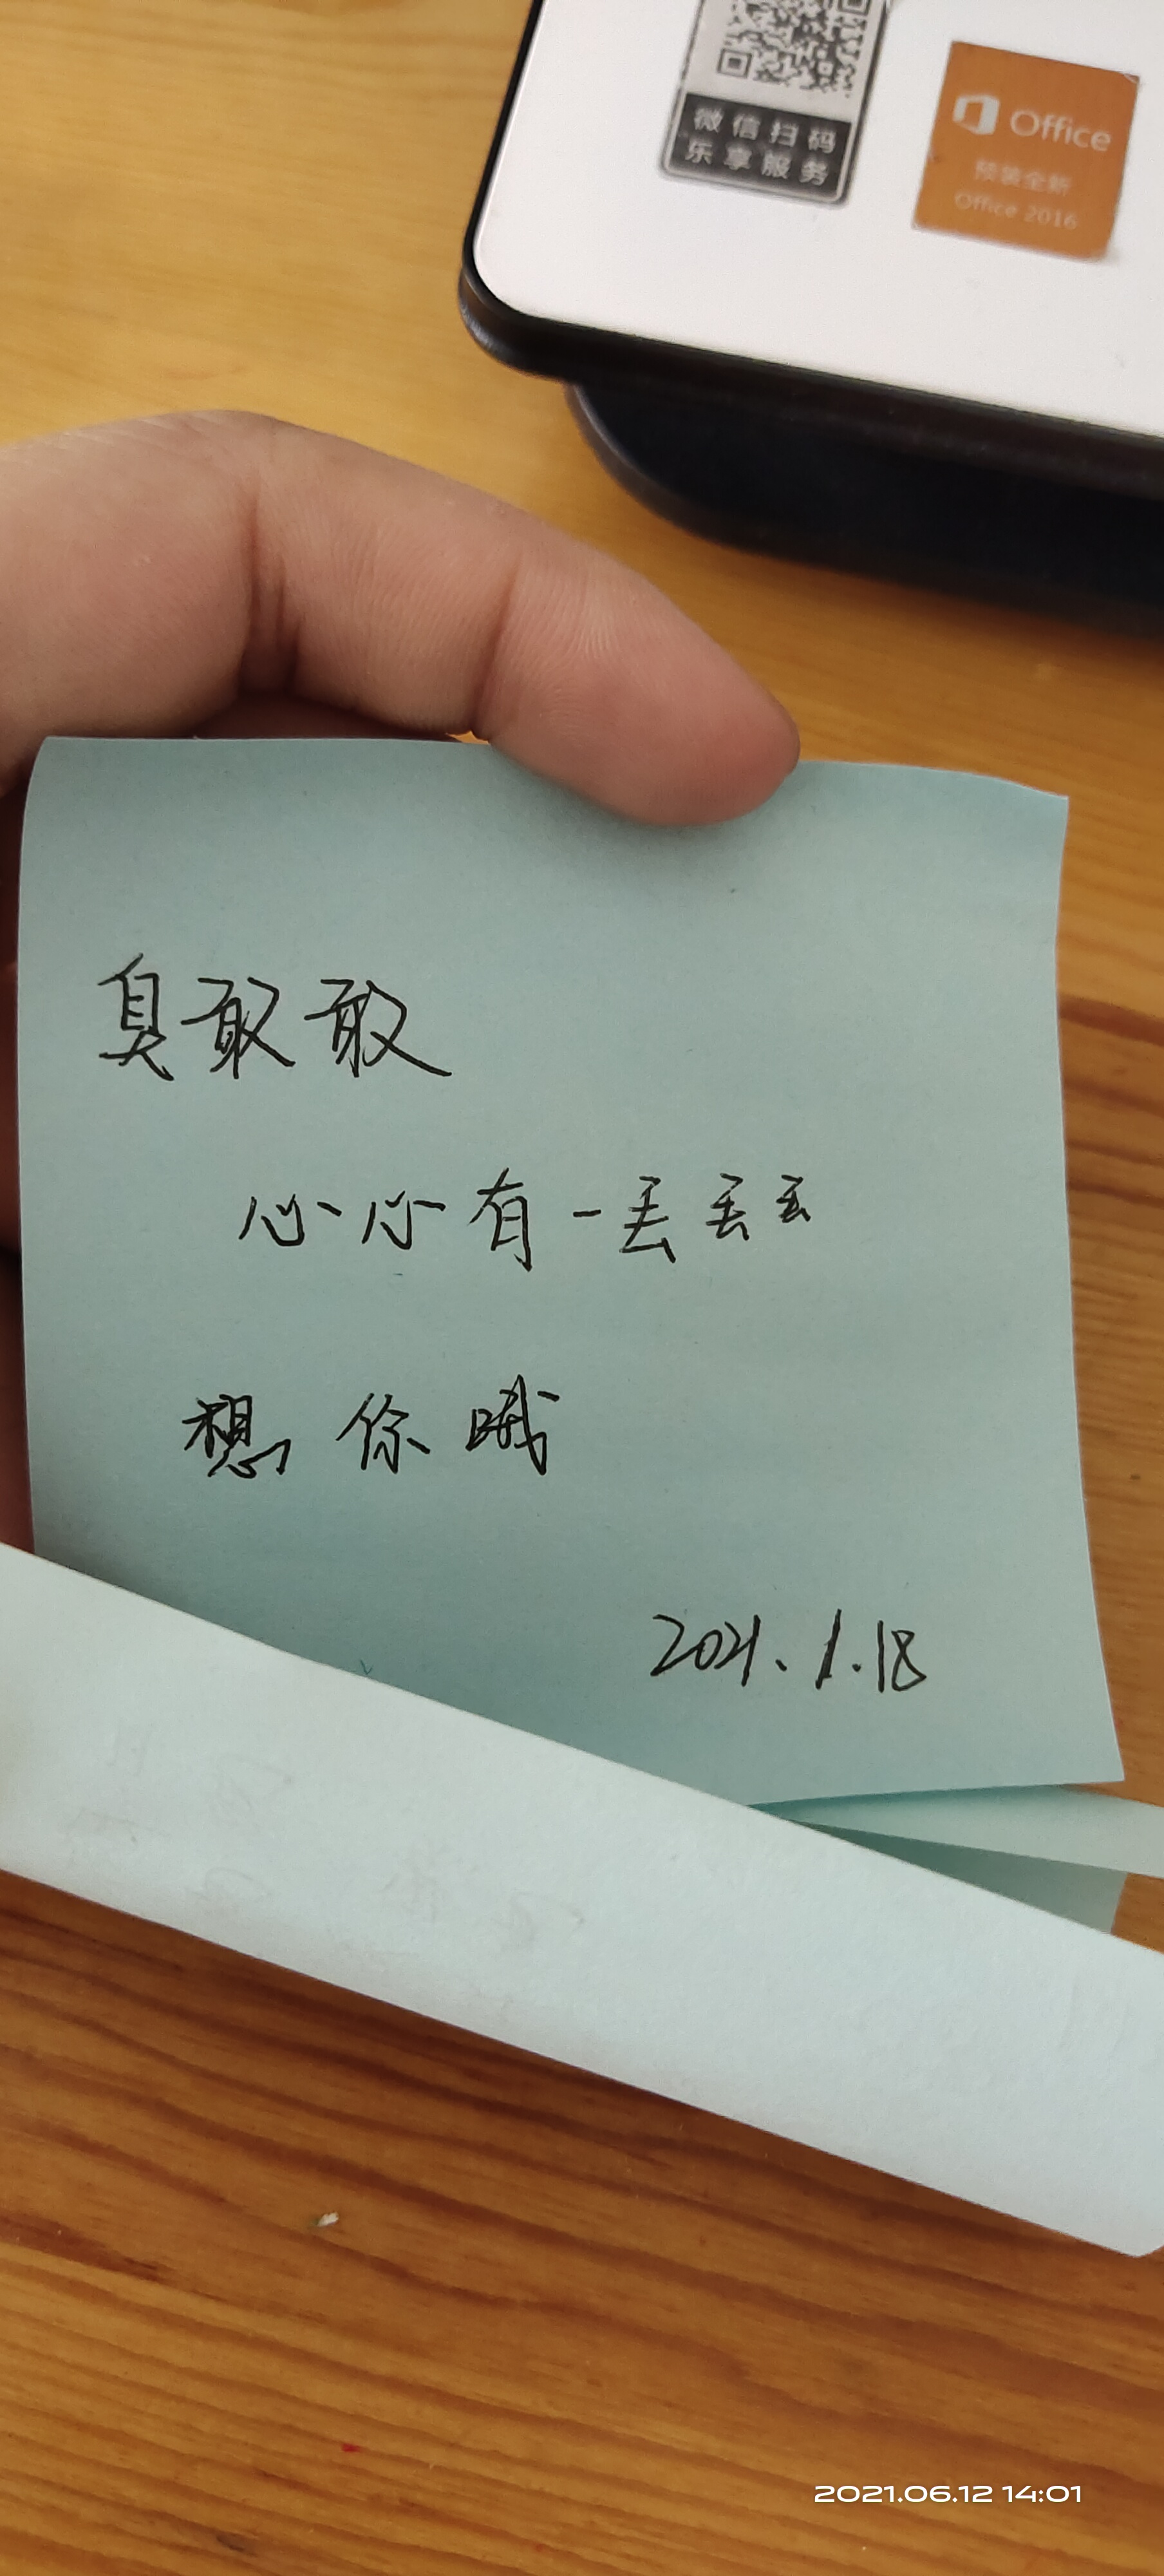 微信扫码
乐享服务
Office
预装全新
Office 2016
臭敢敢
心心有一丢丢丢
想你哦
2021.1.18
2021.06.12 14:01